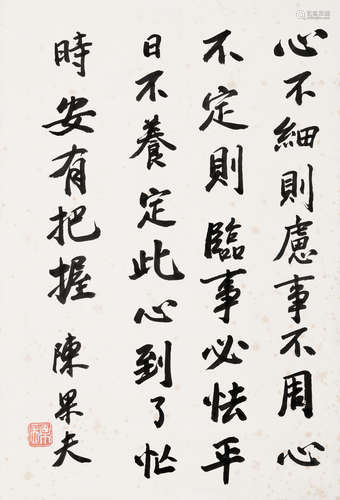 心不細則慮事不周心
不定則臨事必怯平
日不養定此心到了忙
時安有把握 陳果夫